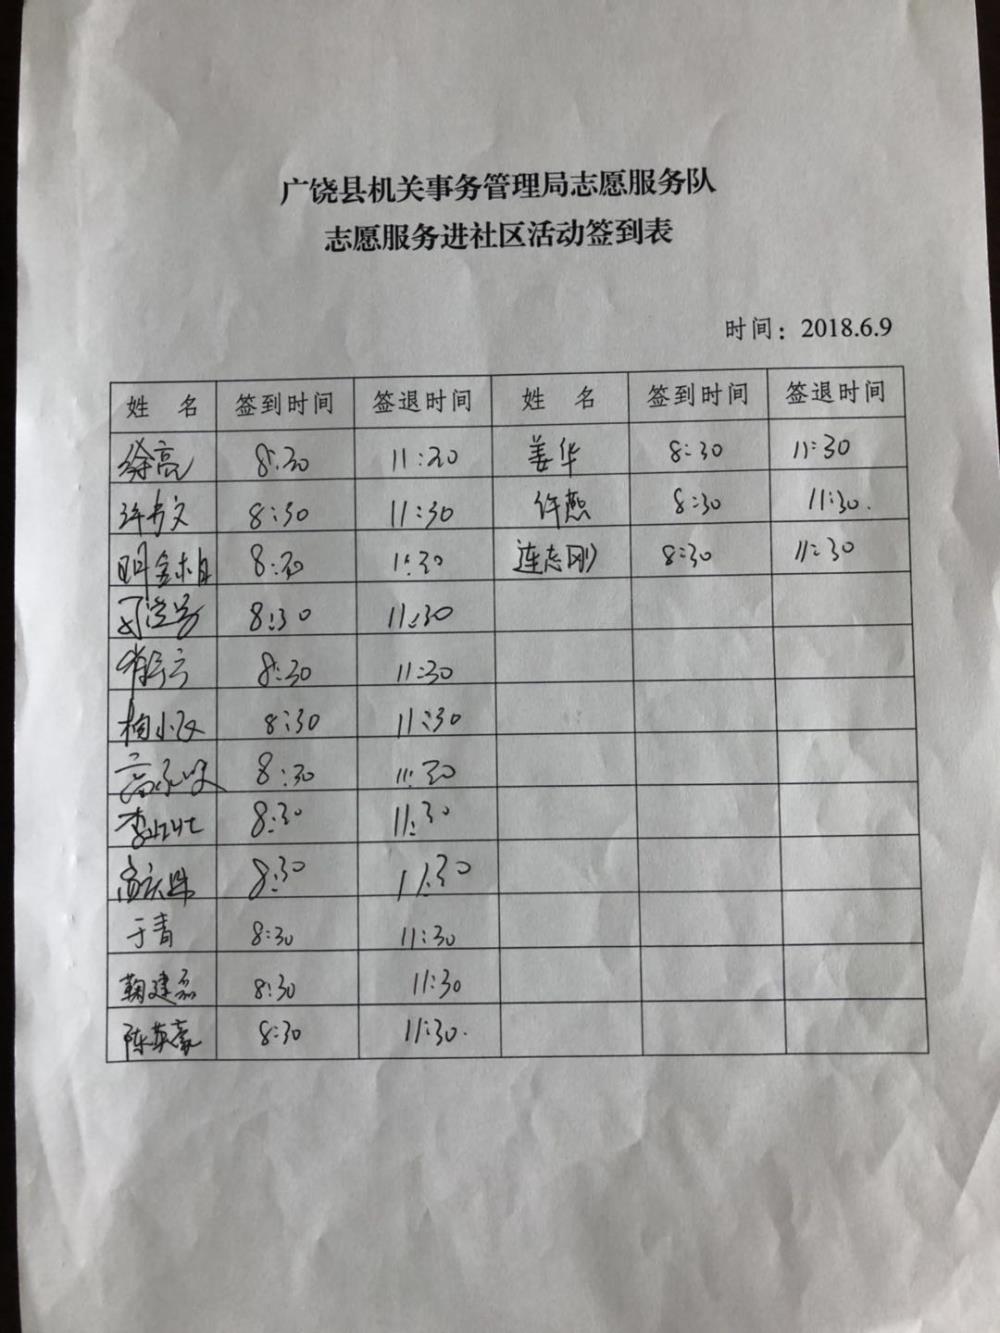 广饶县机关事务管理局志愿服务队
志愿服务进社区活动签到表
时间：2018.6.9
姓 名 签到时间 签退时间 姓 名 签到时间 签退时间
徐亮 8:30 11:30 姜华 8:30 11:30
许书文 8:30 11:30 许燕 8:30 11:30.
8:30 11:30 连志刚 8:30 11:30
8:30 11:30
8:30 11:30
8:30 11:30
8:30 11:30
8:30 11:30
8:30 11:30
于青 8:30 11:30
鞠建磊 8:30 11:30
陈英豪 8:30 11:30.